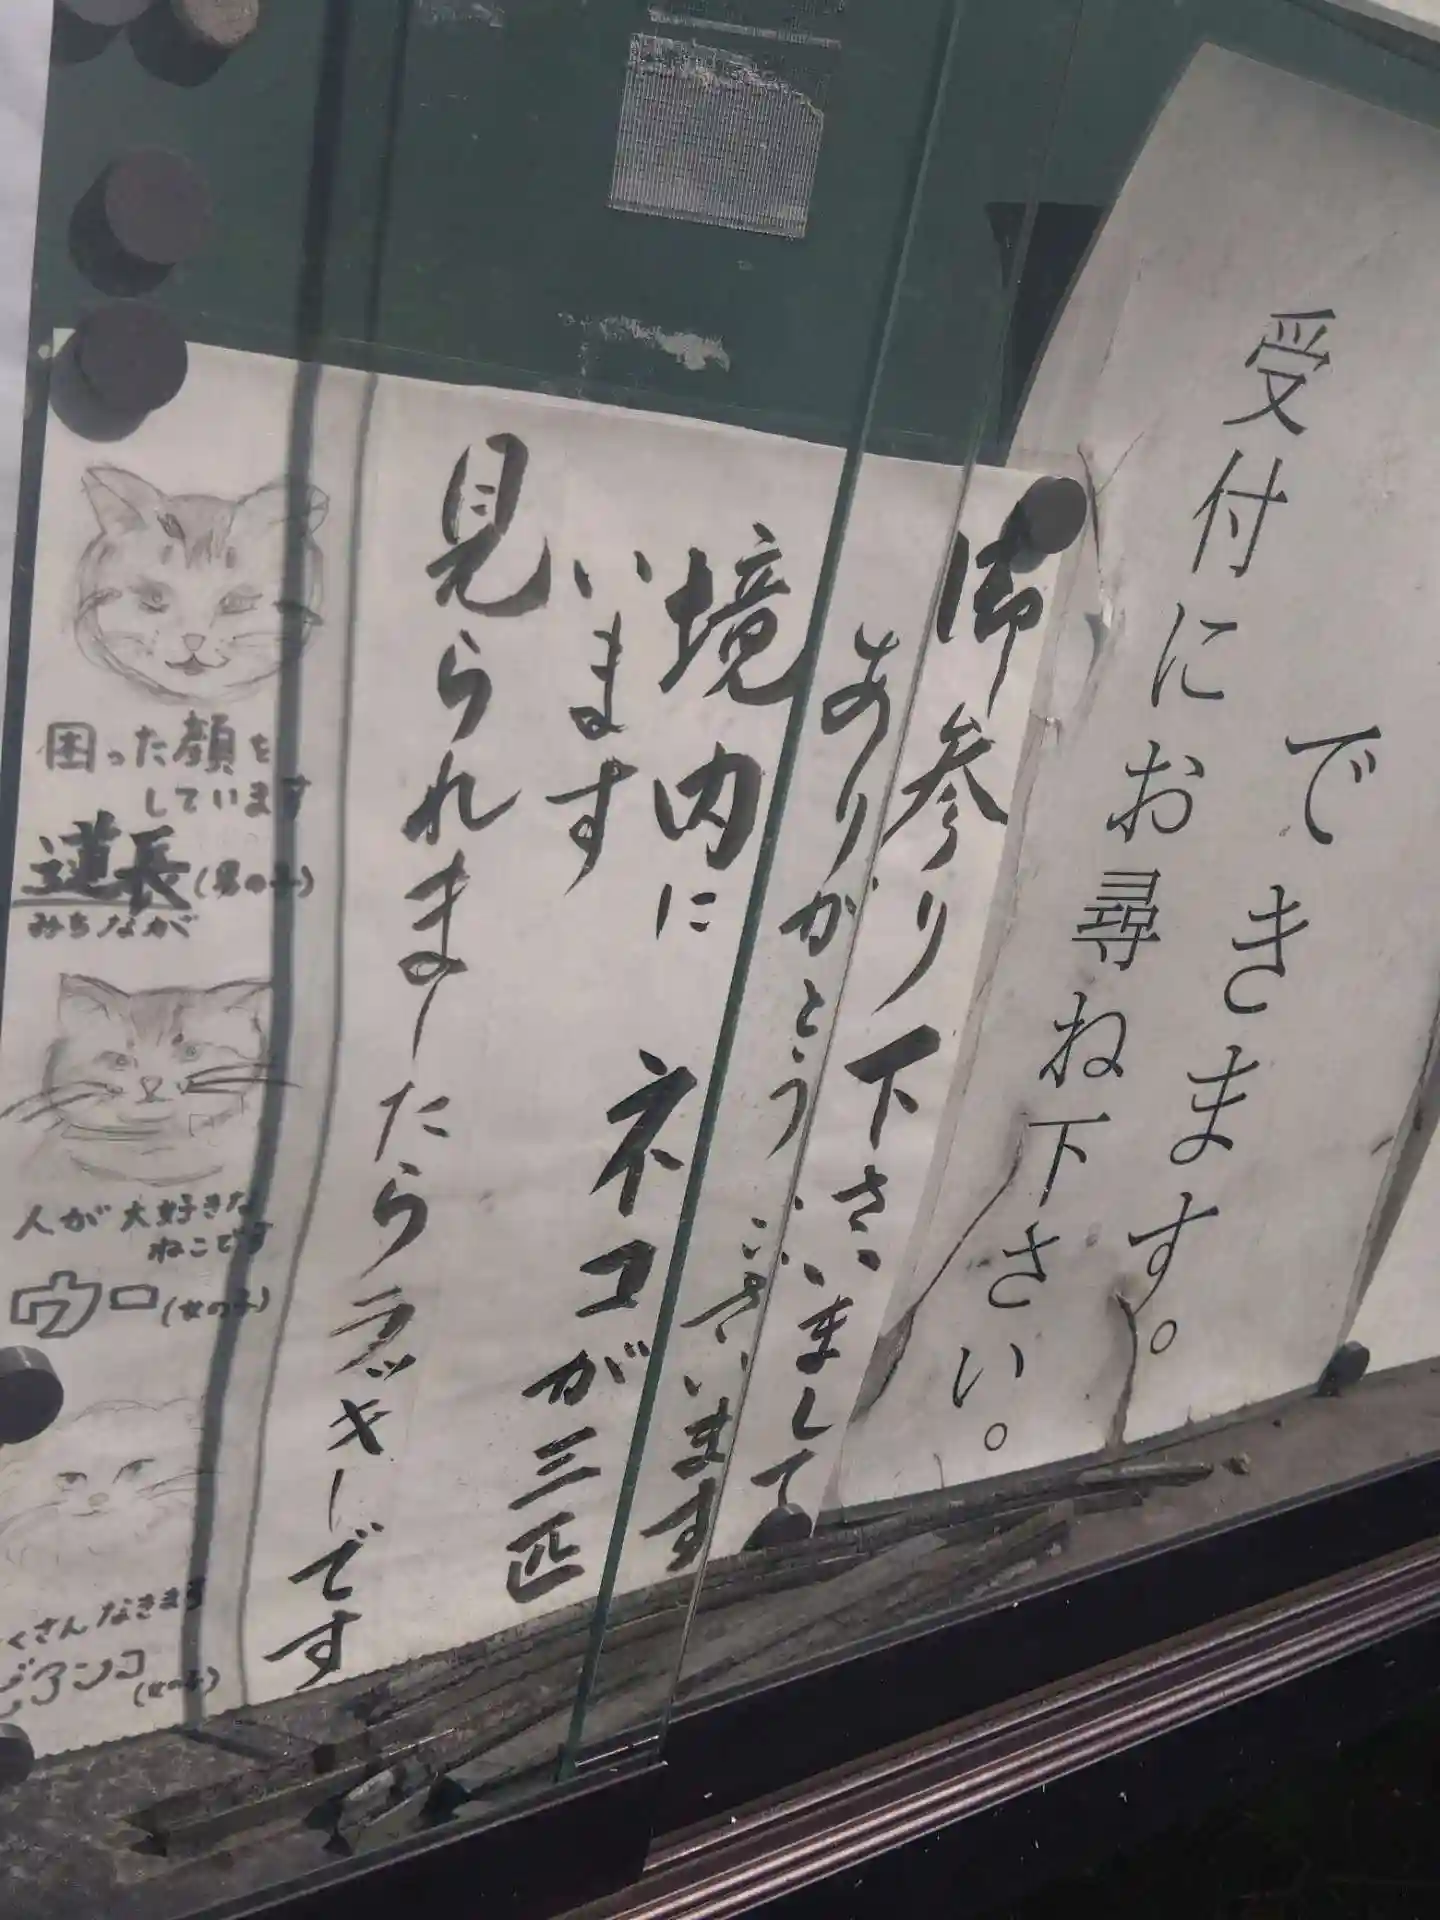 できます。
受付にお尋ね下さい。
御参り下さいまして
ありがとうございます
境内に ネコが三匹
います
見られましたらラッキーです
困った顔を
しています
道長(男の子)
みちなが
人が大好きな
ねこです
ウロ(女の子)
くさんなきます
ビアンコ
(女の子)